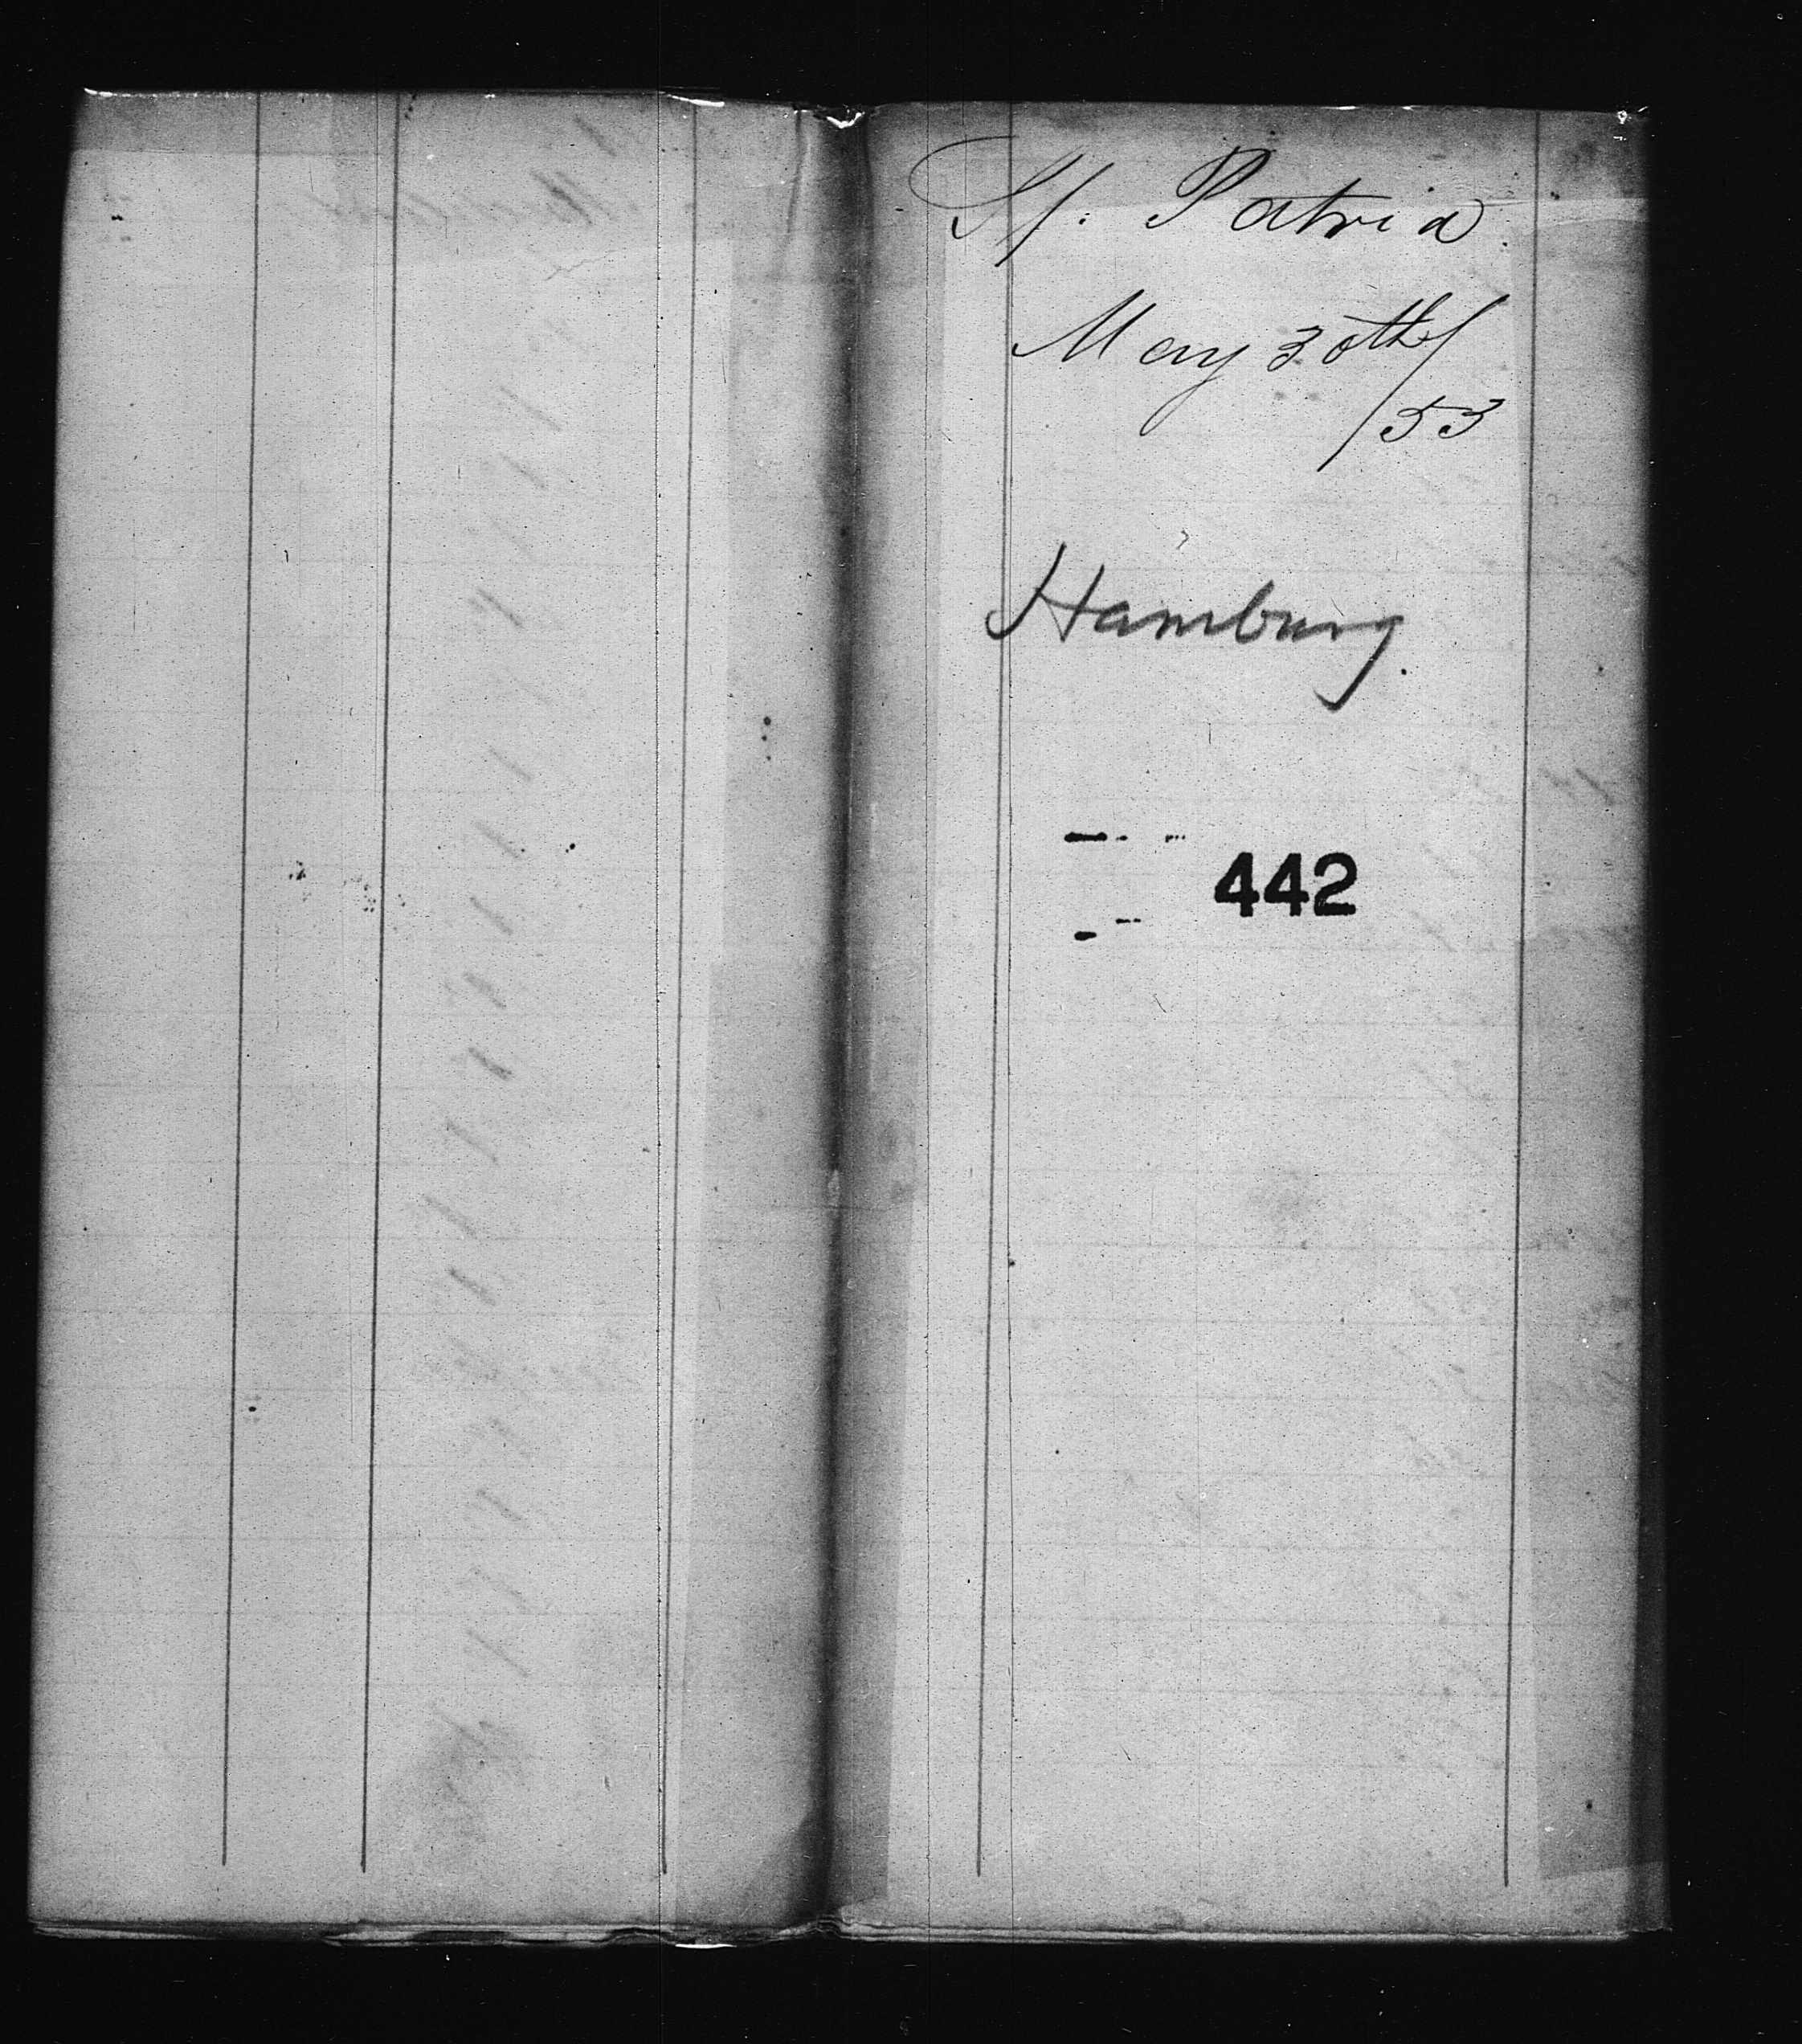 Sp. Patria.
May 30th/
/53
Hamburg.
442